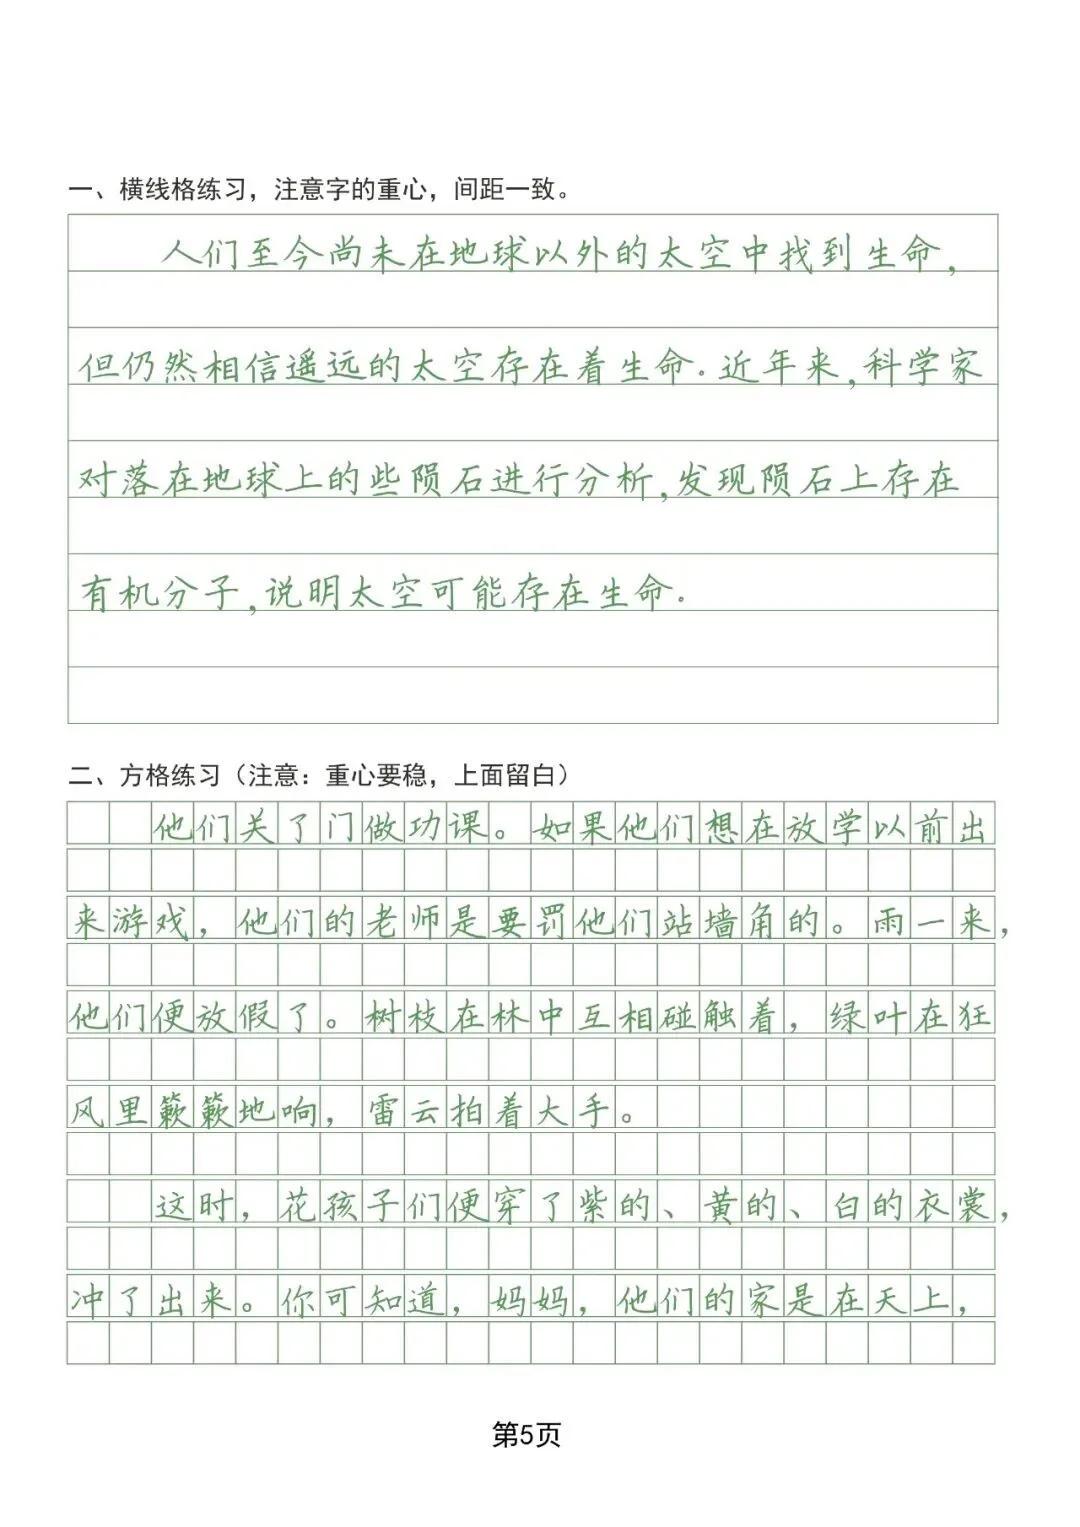 一、横线格练习，注意字的重心，间距一致。
人们至今尚未在地球以外的太空中找到生命，
但仍然相信遥远的太空存在着生命.近年来,科学家
对落在地球上的些陨石进行分析,发现陨石上存在
有机分子,说明太空可能存在生命.
二、方格练习（注意：重心要稳，上面留白）
他们关了门做功课。如果他们想在放学以前出
来游戏，他们的老师是要罚他们站墙角的。雨一来，
他们便放假了。树枝在林中互相碰触着，绿叶在狂
风里簌簌地响，雷云拍着大手。
这时，花孩子们便穿了紫的、黄的、白的衣裳，
冲了出来。你可知道，妈妈，他们的家是在天上，
第5页